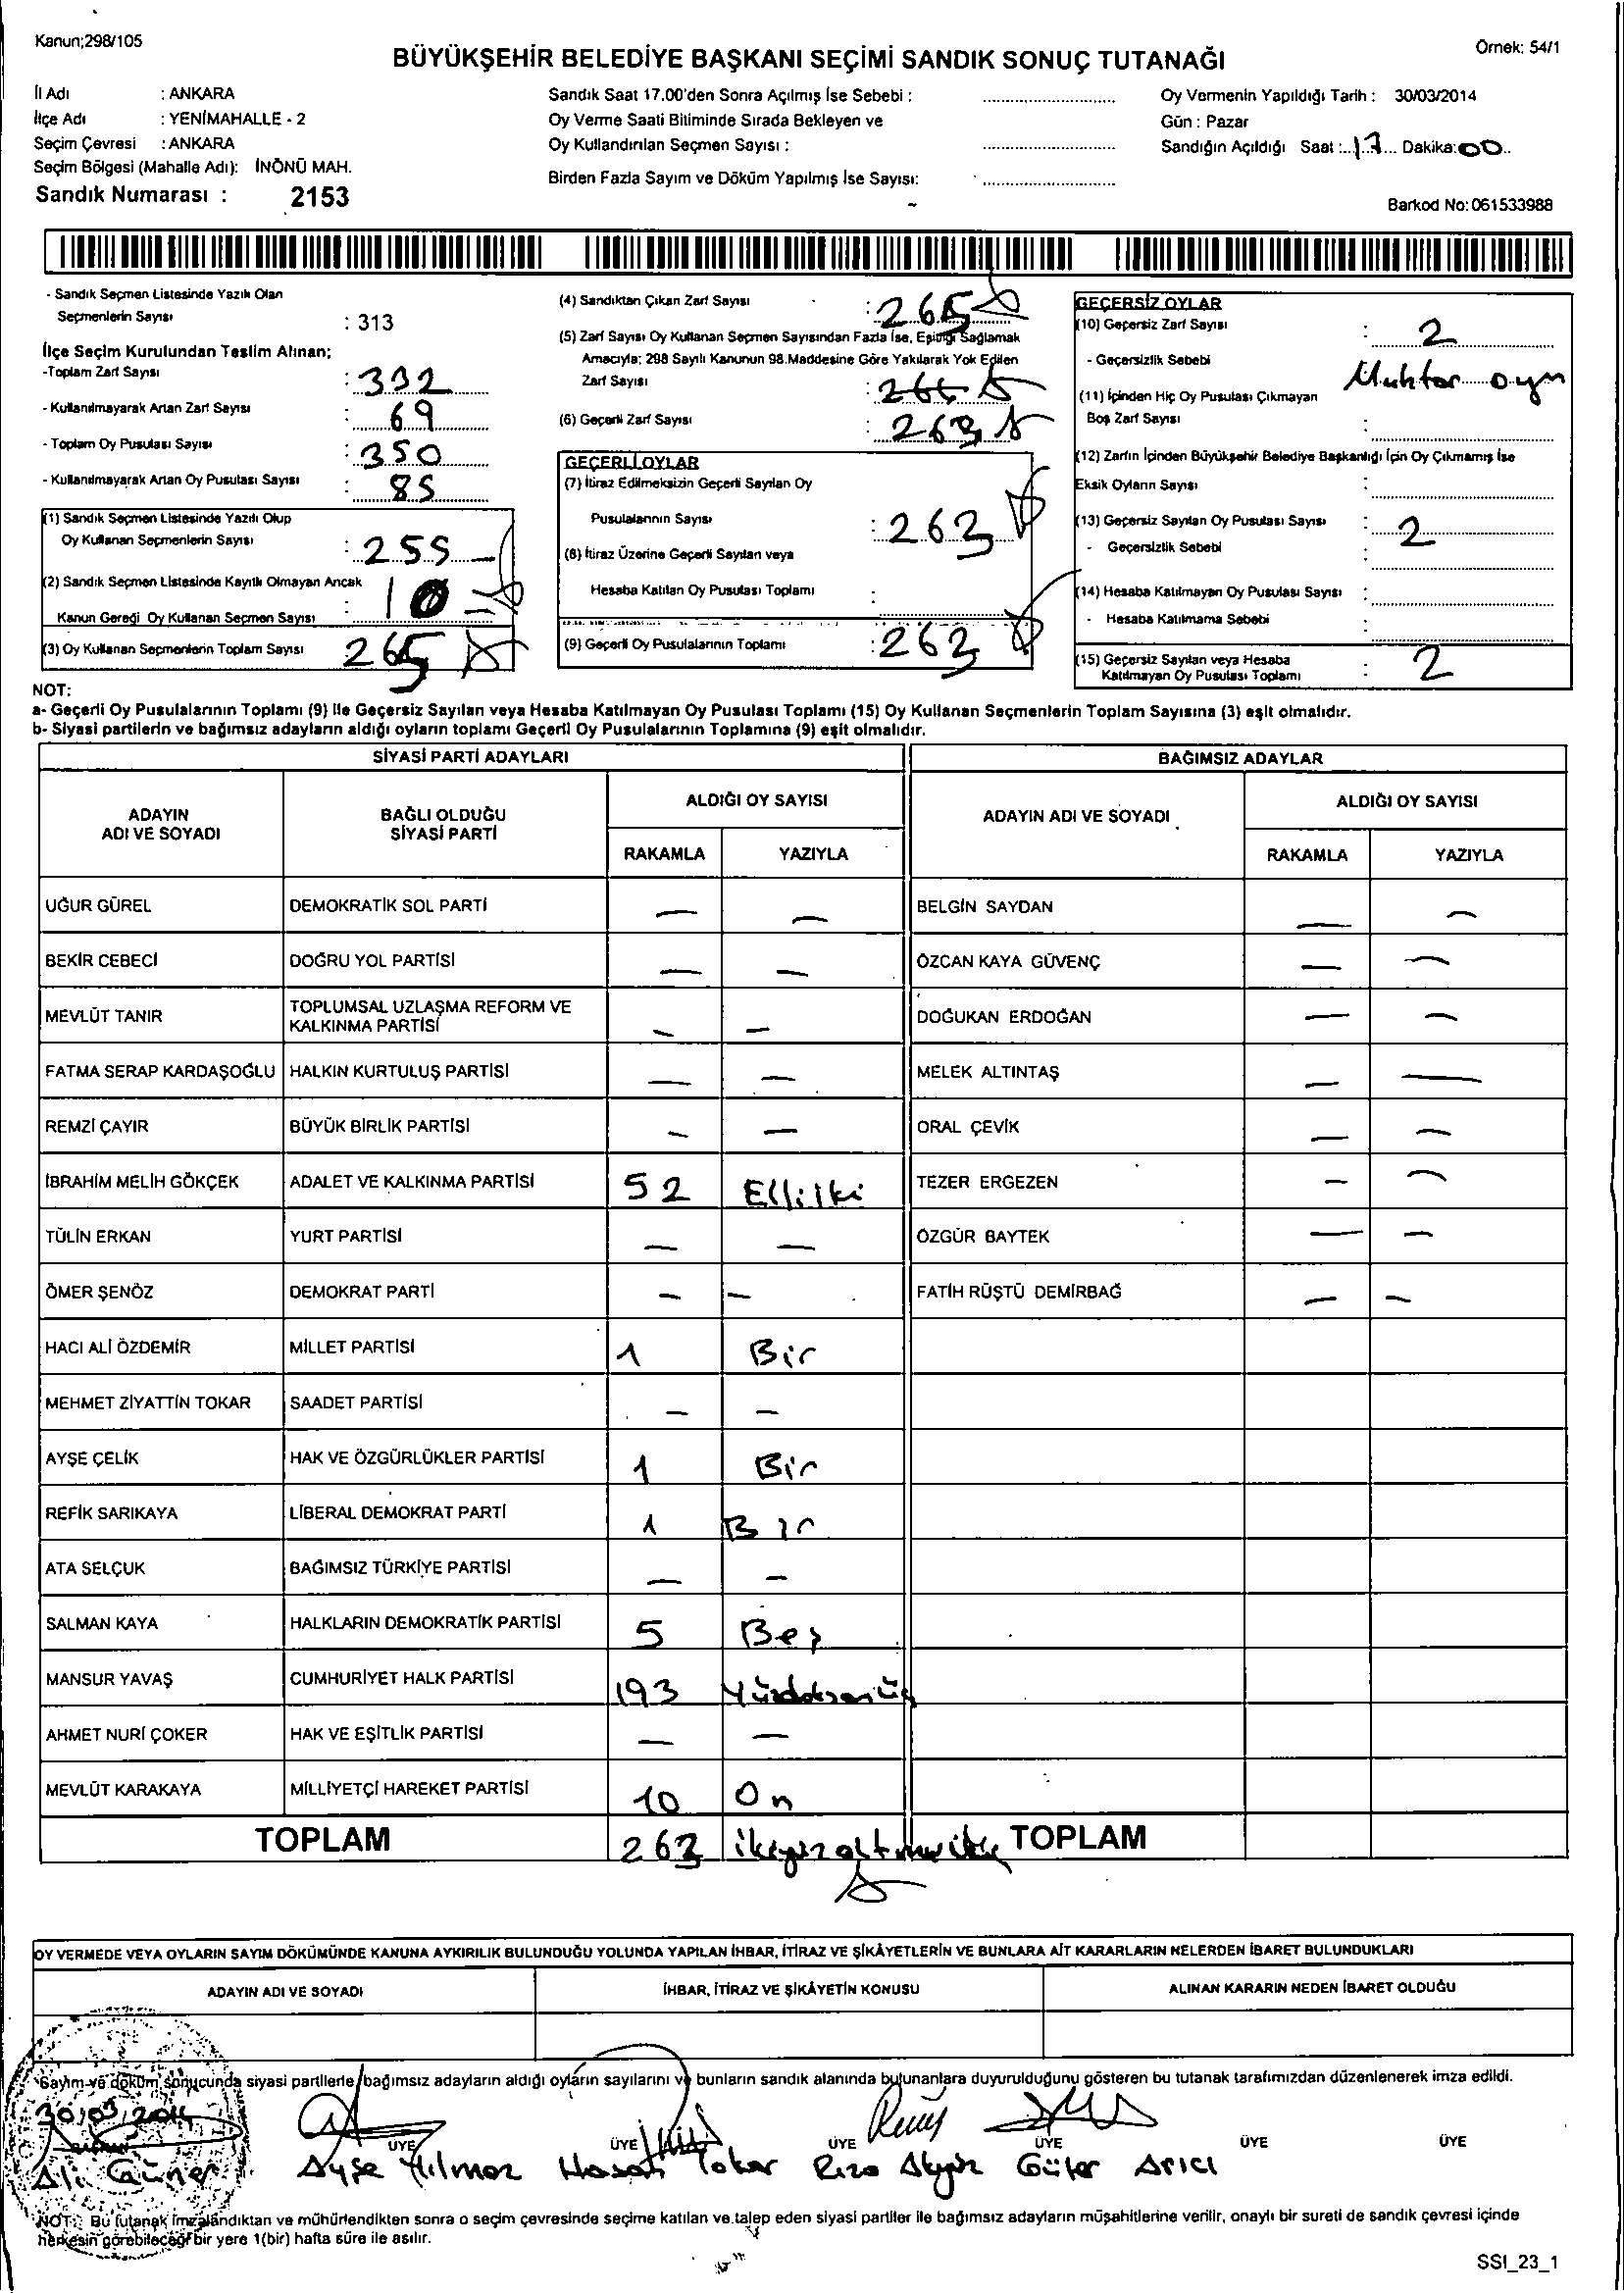 Kanun;298/105
Örnek: 54/1
BÜYÜKŞEHİR BELEDİYE BAŞKANI SEÇİMİ SANDIK SONUÇ TUTANAĞI
İl Adı : ANKARA
İlçe Adı : YENİMAHALLE - 2
Seçim Çevresi : ANKARA
Seçim Bölgesi (Mahalle Adı): İNÖNÜ MAH.
Sandık Numarası : 2153
Sandık Saat 17.00'den Sonra Açılmış İse Sebebi :
Oy Verme Saati Bitiminde Sırada Bekleyen ve
Oy Kullandırılan Seçmen Sayısı :
Birden Fazla Sayım ve Döküm Yapılmış İse Sayısı:
Oy Vermenin Yapıldığı Tarih : 30/03/2014
Gün : Pazar
Sandığın Açıldığı Saat : 17 Dakika: 00
Barkod No: 061533988
- Sandık Seçmen Listesinde Yazılı Olan
Seçmenlerin Sayısı : 313
İlçe Seçim Kurulundan Teslim Alınan;
-Toplam Zarf Sayısı : 332
- Kullanılmayarak Artan Zarf Sayısı : 69
- Toplam Oy Pusulası Sayısı : 350
- Kullanılmayarak Artan Oy Pusulası Sayısı : 85
(1) Sandık Seçmen Listesinde Yazılı Olup
Oy Kullanan Seçmenlerin Sayısı : 255
(2) Sandık Seçmen Listesinde Kayıtlı Olmayan Ancak
Kanun Gereği Oy Kullanan Seçmen Sayısı : 10
(3) Oy Kullanan Seçmenlerin Toplam Sayısı 265
(4) Sandıktan Çıkan Zarf Sayısı : 265
(5) Zarf Sayısı Oy Kullanan Seçmen Sayısından Fazla İse, Eşitliği Sağlamak
Amacıyla; 298 Sayılı Kanunun 98.Maddesine Göre Yakılarak Yok Edilen
Zarf Sayısı :
(6) Geçerli Zarf Sayısı : 263
GEÇERLİ OYLAR
(7) İtiraz Edilmeksizin Geçerli Sayılan Oy
Pusulalarının Sayısı : 263
(8) İtiraz Üzerine Geçerli Sayılan veya
Hesaba Katılan Oy Pusulası Toplamı :
(9) Geçerli Oy Pusulalarının Toplamı : 263
GEÇERSİZ OYLAR
(10) Geçersiz Zarf Sayısı : 2
- Geçersizlik Sebebi Muhtar oyu
(11) İçinden Hiç Oy Pusulası Çıkmayan
Boş Zarf Sayısı :
(12) Zarfın İçinden Büyükşehir Belediye Başkanlığı İçin Oy Çıkmamış İse
Eksik Oyların Sayısı :
(13) Geçersiz Sayılan Oy Pusulası Sayısı : 2
- Geçersizlik Sebebi :
(14) Hesaba Katılmayan Oy Pusulası Sayısı :
- Hesaba Katılmama Sebebi :
(15) Geçersiz Sayılan veya Hesaba
Katılmayan Oy Pusulası Toplamı : 2
NOT:
a- Geçerli Oy Pusulalarının Toplamı (9) İle Geçersiz Sayılan veya Hesaba Katılmayan Oy Pusulası Toplamı (15) Oy Kullanan Seçmenlerin Toplam Sayısına (3) eşit olmalıdır.
b- Siyasi partilerin ve bağımsız adayların aldığı oyların toplamı Geçerli Oy Pusulalarının Toplamına (9) eşit olmalıdır.
SİYASİ PARTİ ADAYLARI
BAĞIMSIZ ADAYLAR
ADAYIN ADI VE SOYADI
BAĞLI OLDUĞU SİYASİ PARTİ
ALDIĞI OY SAYISI
RAKAMLA YAZIYLA
ADAYIN ADI VE SOYADI
ALDIĞI OY SAYISI
RAKAMLA YAZIYLA
UĞUR GÜREL DEMOKRATİK SOL PARTİ — — BELGİN SAYDAN — —
BEKİR CEBECİ DOĞRU YOL PARTİSİ — — ÖZCAN KAYA GÜVENÇ — —
MEVLÜT TANIR TOPLUMSAL UZLAŞMA REFORM VE KALKINMA PARTİSİ — — DOĞUKAN ERDOĞAN — —
FATMA SERAP KARDAŞOĞLU HALKIN KURTULUŞ PARTİSİ — — MELEK ALTINTAŞ — —
REMZİ ÇAYIR BÜYÜK BİRLİK PARTİSİ — — ORAL ÇEVİK — —
İBRAHİM MELİH GÖKÇEK ADALET VE KALKINMA PARTİSİ 52 Elliiki TEZER ERGEZEN — —
TÜLİN ERKAN YURT PARTİSİ — — ÖZGÜR BAYTEK — —
ÖMER ŞENÖZ DEMOKRAT PARTİ — — FATİH RÜŞTÜ DEMİRBAĞ — —
HACI ALİ ÖZDEMİR MİLLET PARTİSİ 1 Bir
MEHMET ZİYATTİN TOKAR SAADET PARTİSİ — —
AYŞE ÇELİK HAK VE ÖZGÜRLÜKLER PARTİSİ 1 Bir
REFİK SARIKAYA LİBERAL DEMOKRAT PARTİ 1 Bir
ATA SELÇUK BAĞIMSIZ TÜRKİYE PARTİSİ — —
SALMAN KAYA HALKLARIN DEMOKRATİK PARTİSİ 5 Beş
MANSUR YAVAŞ CUMHURİYET HALK PARTİSİ 193 Yüzdoksanüç
AHMET NURİ ÇOKER HAK VE EŞİTLİK PARTİSİ — —
MEVLÜT KARAKAYA MİLLİYETÇİ HAREKET PARTİSİ 10 On
TOPLAM 263 TOPLAM
OY VERMEDE VEYA OYLARIN SAYIM DÖKÜMÜNDE KANUNA AYKIRILIK BULUNDUĞU YOLUNDA YAPILAN İHBAR, İTİRAZ VE ŞİKÂYETLERİN VE BUNLARA AİT KARARLARIN NELERDEN İBARET BULUNDUKLARI
ADAYIN ADI VE SOYADI İHBAR, İTİRAZ VE ŞİKÂYETİN KONUSU ALINAN KARARIN NEDEN İBARET OLDUĞU
Sayım ve döküm sonucunda siyasi partilerle bağımsız adayların aldığı oyların sayılarını ve bunların sandık alanında bulunanlara duyurulduğunu gösteren bu tutanak tarafımızdan düzenlenerek imza edildi.
30/03/2014
ÜYE ÜYE ÜYE ÜYE ÜYE ÜYE
Ali Güner Ayşe Yılmaz Hasan Tokar Rıza Akgün Güler Arıcı
NOT: Bu tutanak imzalandıktan ve mühürlendikten sonra o seçim çevresinde seçime katılan ve talep eden siyasi partiler ile bağımsız adayların müşahitlerine verilir, onaylı bir sureti de sandık çevresi içinde
herkesin görebileceği bir yere 1(bir) hafta süre ile asılır.
SSI_23_1